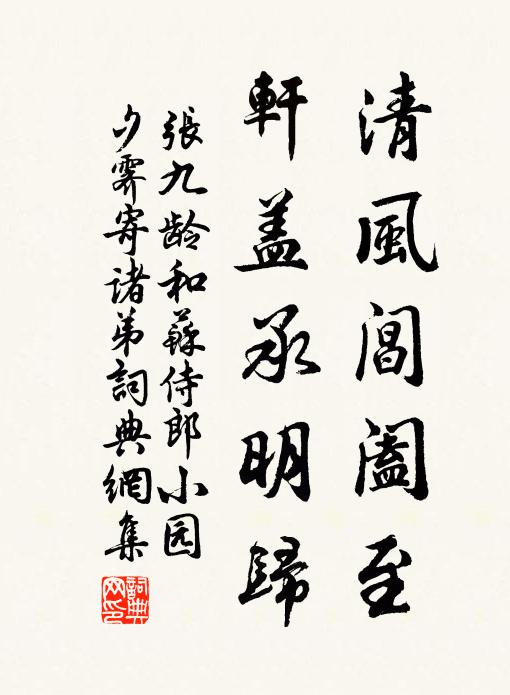 清風閶闔至
軒盖承明歸
張九龄和蘇侍郎小园
夕霽寄諸弟詞典網集
詞典網印